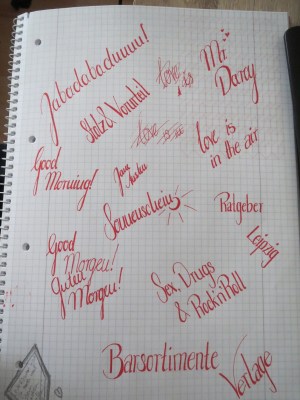 Jabadabaduuuu!
Mr.
Darcy
Stolz & Vorurteil
love
love is
in the air
Good
Morning!
Jane
Austen
Sonnenschein
Ratgeber
Leipzig
Good
Morgen!
Guten
Morgen!
Sex, Drugs
& Rock'n'Roll
Barsortimente
Verlage